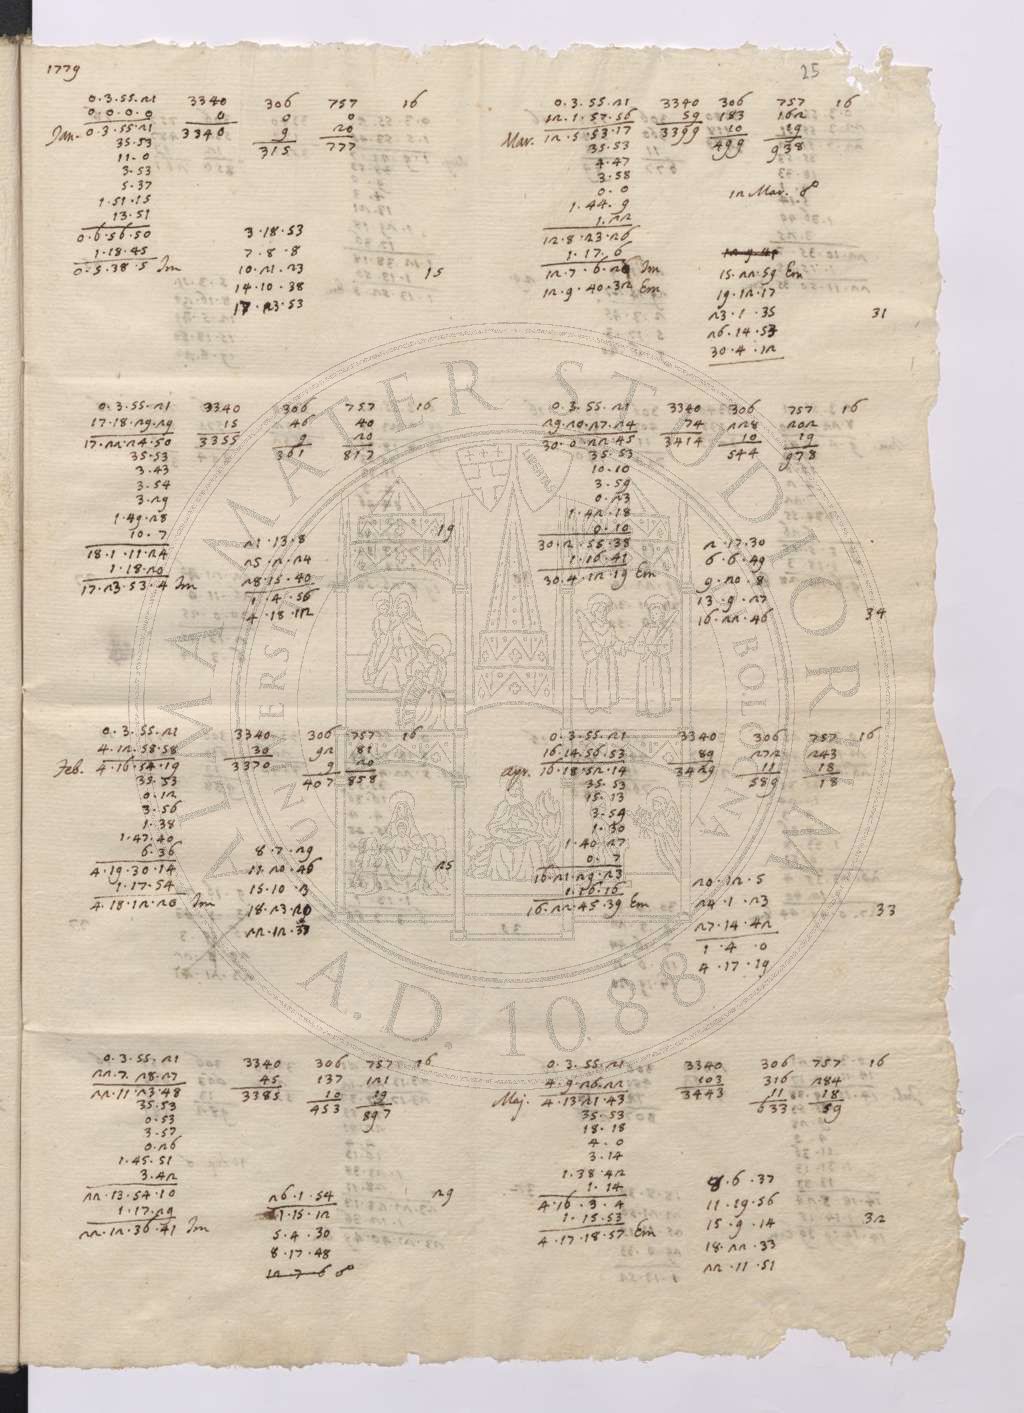 1779
25
0.3.55.21 3340 306 757 16
0.0.0.0 0 0 0
Jan. 0.3.55.21 3340 9 20
35.53 315 777
11.0
3.53
5.37
1.51.15
13.51
0.6.56.50 3.18.53
1.18.45 7.8.8
0.5.38.5 Im 10.21.23 15
14.10.38
17.23.53
0.3.55.21 3340 306 757 16
12.1.57.56 59 183 162
Mar. 12.5.53.17 3399 10 19
35.53 499 938
4.47
3.58
0.0 in Mar. 8°
1.44.9
1.22
12.8.23.26
1.17.6 12.9.40
12.7.6.20 Im 15.22.59 Em
12.9.40.32 Em 19.12.17
23.1.35 31
26.14.53
30.4.12
0.3.55.21 3340 306 757 16
17.18.29.29 15 46 40
17.22.24.50 3355 9 20
35.53 361 817
3.43
3.54
3.29
1.49.28
10.7 19
18.1.11.24 21.13.8
1.18.20 25.2.24
17.23.53.4 Im 28.15.40
1.4.56
4.18.12
0.3.55.21 3340 306 757 16
29.20.27.24 74 228 202
30.0.22.45 3414 10 19
35.53 544 978
10.10
3.59
0.23
1.42.18
0.10
30.2.55.38 2.17.30
1.16.41 6.6.49
30.4.12.19 Em 9.20.8
13.9.27
16.22.46 34
0.3.55.21 3340 306 757 16
4.12.58.58 30 92 81
Feb. 4.16.54.19 3370 9 20
35.53 407 858
0.12
3.56
1.38
1.47.40
6.36 8.7.29
4.19.30.14 11.20.46 25
1.17.54 15.10.2
4.18.12.20 Im 18.23.20
22.12.37
0.3.55.21 3340 306 757 16
16.14.56.53 89 272 243
apr. 16.18.52.14 3429 11 18
35.53 589 18
15.13
3.59
1.30
1.40.27
0.7
16.21.29.23 20.12.5
1.16.16 24.1.23
16.22.45.39 Em 27.14.42 33
1.4.0
4.17.19
0.3.55.21 3340 306 757 16
22.7.28.27 45 137 121
22.11.23.48 3385 10 19
35.53 453 897
0.53
3.57
0.26
1.45.51
3.42
22.13.54.10 26.1.54 29
1.17.29 1.15.12
22.12.36.41 Im 5.4.30
8.17.48
12.7.6 8°
0.3.55.21 3340 306 757 16
4.9.26.22 103 316 284
Maj. 4.13.21.43 3443 11 18
35.53 633 59
18.18
4.0
3.14
1.38.42
1.14 8.6.37
4.16.3.4 11.19.56
1.15.53 15.9.14 32
4.17.18.57 Em 18.22.33
22.11.51
ALMA MATER STUDIORUM
UNIVERSITÀ DI BOLOGNA
A.D. 1088